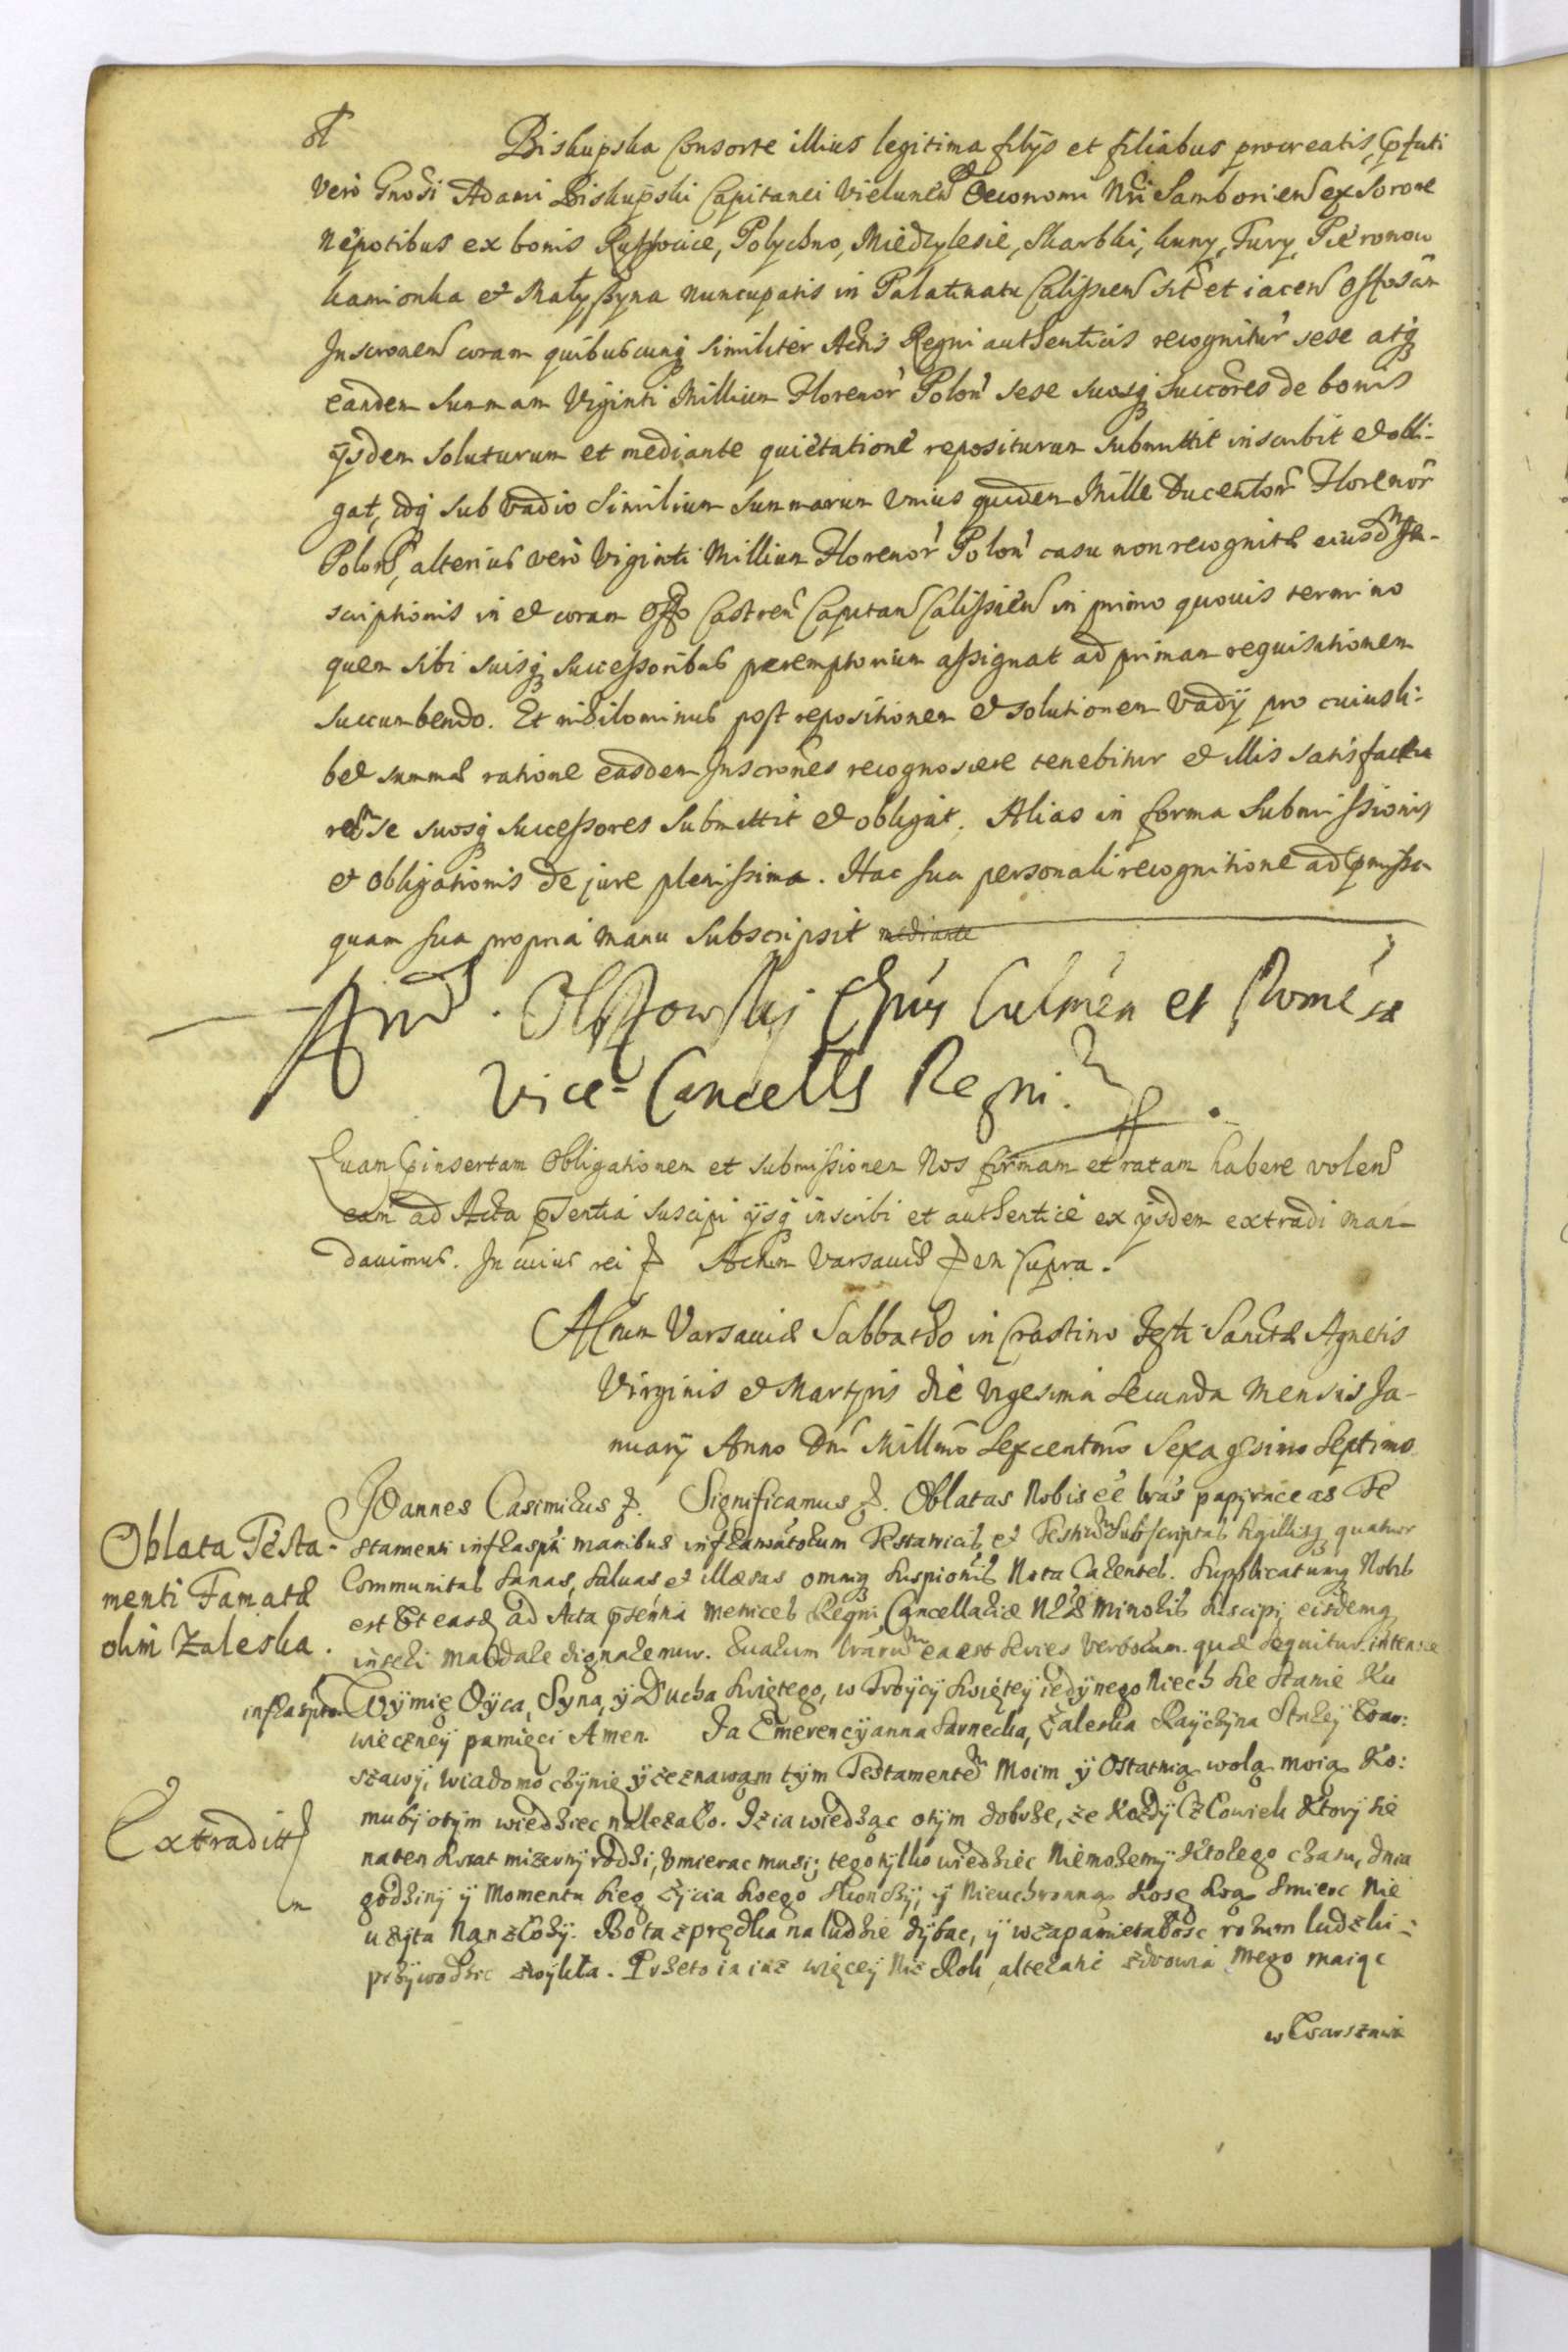 Biskupska Consorte illius legitima filijs et filiabus procreatis, pfati
Vero Gnosi Adami Biskupski Capitanei Vielunen Oeconomi Nri Samborien ex Sorore
Nepotibus ex bonis Russocice, Polychno, Miedzylesie, Skarbki, kuny, Tury, Pieronow
kamionka et Małyszyna nuncupatis in Palatinatu Calissien sit et iacen
Inscronem coram quibuscunq similiter Actis Regni authenticis recognitur sese atq
eandem Summam Viginti Millium Florenor Polon sese suosq succores de bonis
ijsdem soluturum et mediante quietatione repositurum submittit inscribit et obli-
gat, idq sub vadio similium summarum unius quidem Mille Ducentor Florenor
Polon, alterius vero Viginti Millium Florenor Polon casu non recognitae eiusdm In-
scriptionis in et coram Offo Castren Capitan Calissien in primo quovis termino
quem sibi suisq successoribus peremptorium assignat ad primam requisitionem
succumbendo. Et nihilominus post repositionem et solutionem vadij pro cuiusli:
bet summae ratione easdem Inscrones recognoscere tenebitur et illis satisfactu
rum se suosq successores submittit et obligat. Alias in forma submissionis
et obligationis de jure plenissima. Hac sua personali recognitione ad pmissa
quam sua propria manu subscripsit mediante
And. Olszowskij Epus Culmen et Pomesae
Vice-Cancells Regni.
Quam pinsertam Obligationem et submissionem Nos firmam et ratam habere volen
eam ad Acta psentia suscipi ijsq inscribi et authentice ex ijsdem extradi man-
davimus. In cuius rei Actum Varsaviae ut supra.
Actum Varsaviae Sabbatho in Crastino Festi Sanctae Agnetis
Virginis et Martyris die vigesima secunda Mensis Ja-
nuarij Anno Dni Millmo Sexcentmo Sexagesimo Septimo
Oblata Testa-
menti Famatae
olim Zaleska.
Joannes Casimirus Significamus Oblatas Nobis ee lras papyraceas Te
stamenti infraspti manibus Testatricis et Testium subscriptas sigillisq quatuor
Communitas sanas, salvas et illaesas omniq suspionis nota carentes. Supplicatumq Nobis
est Ut easd ad Acta psentia Metrices Regni Cancellariae Nrae Minoris suscipi eisdemq
inseri mandare dignaremur. Quarum lrarum ea est series verborum quae sequitur
infraspto W ymię Oyca, Syna, ÿ Ducha Swiętego, w Troycÿ Swiętey iedynego Niech sie stanie Ku
wieczney pamięci Amen. Ja Emerencyanna Sarnecka, Zaleska Rayczyna Starey War:
szawÿ, Wiadomo czynię ÿ zeznawam tym Testamentem Moim ÿ Ostatnią wolą moią Ko:
muby otym wiedziec należało. Iz ia wiedząc otym dobrze, ze Kozdy Człowiek Ktory sie
na ten swiat mizerny rodzi, umierac musi; tego tylko wiedziec niemozemy Ktorego czasu, dnia
godziny ÿ Momentu bieg zycia swego skonczy, ÿ Nieuchronną Kosę swą smierc nie
użyta Nan złozy. Bo ta zprędka na ludzie dybac, ÿ w zapamietałosc rozum ludzki
przywodzic zwykła. Przeto ia iuz więcey niz Rok alteracie zdrowia mego maiąc
Extraditt
w Warszawie